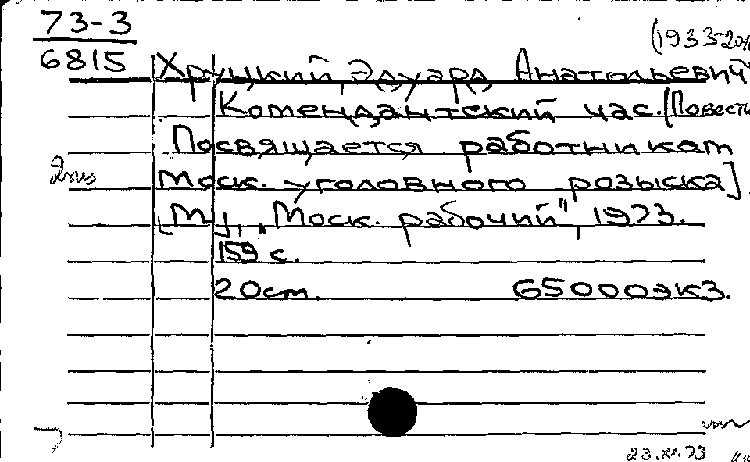 73-3
6815
(1933-20
Хруцкий, Эдуард Анатольевич
Комендантский час. [Повесть
Посвящается работникам
Моск. уголовного розыска].
[М.], „Моск. рабочий", 1973.
159 с.
20 см. 65000 экз.
23.XI.73